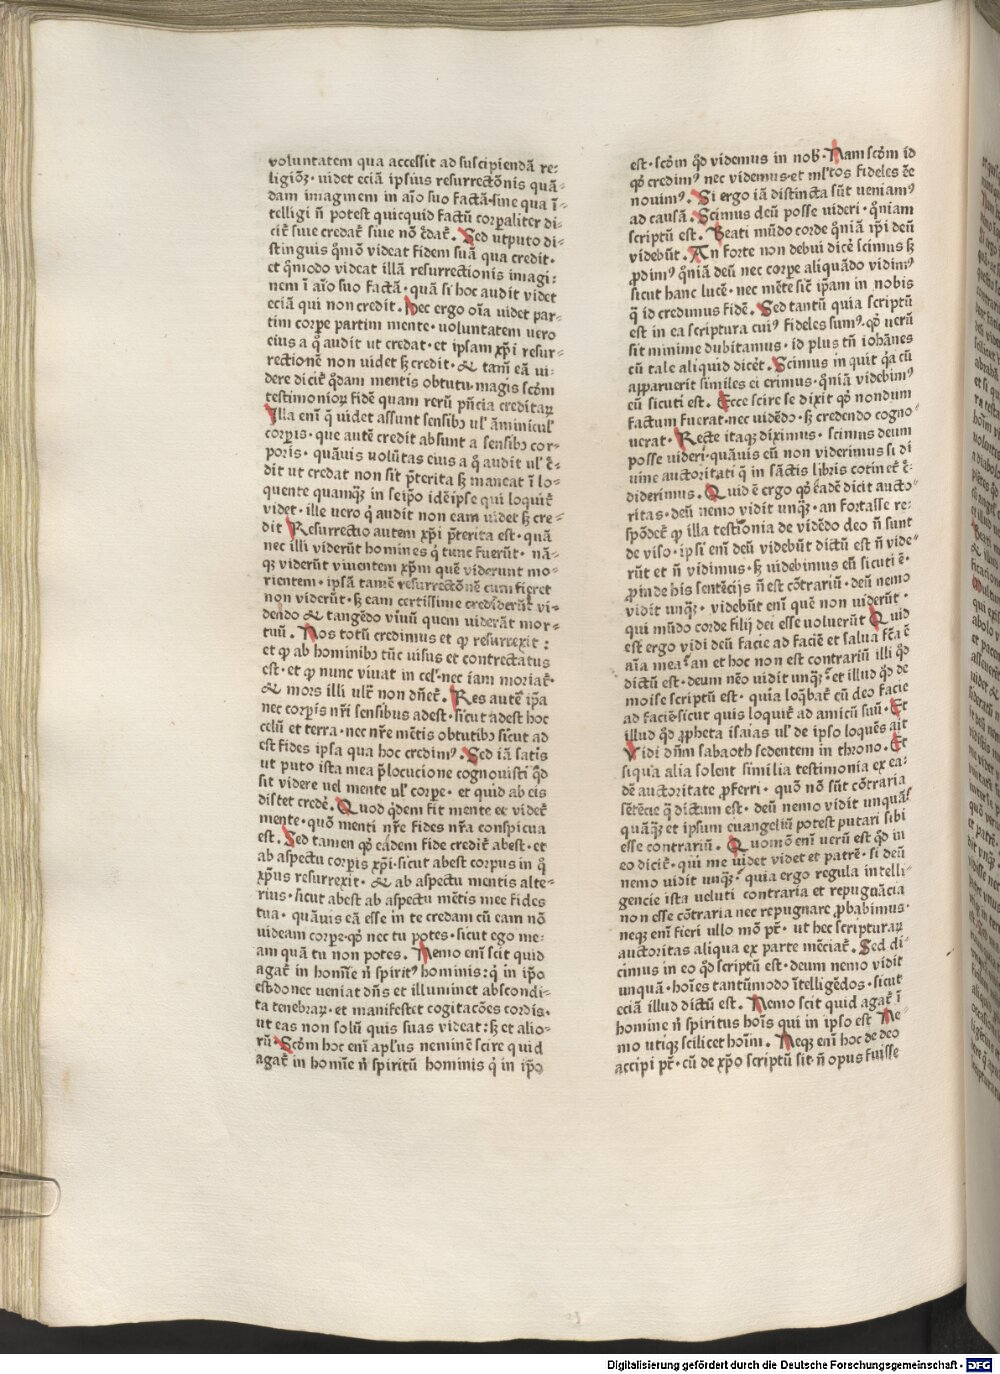 voluntatem qua accessit ad suscipiendā re⸗
ligiōꝫ· uidet eciā ipsius resurrectōnis quā⸗
dam imaginem in aīo suo factā·sine qua ī⸗
telligi n̄ potest quicquid factū corꝑaliter di⸗
cit̄ siue credat̄ siue nō c̄dat̄. Sed ut puto di⸗
stinguis qm̄ō videat fidem suā qua credit·
et qm̄odo videat illā resurrectionis imagi⸗
nem ī aīo suo factā· quā si hoc audit videt
eciā qui non credit. Hec ergo oīa uidet par⸗
tim corꝑe partim mente· voluntatem vero
eius a q̄ audit ut credat· et ipsam xp̄i resur⸗
rectionē non uidet sꝫ credit· & tam̄ eā ui⸗
dere dicit̄ q̄dam mentis obtutu· magis scd̄m
testimonioꝝ fidē quam rerū pn̄cia creditaꝝ
Illa eni q̄ uidet assunt sensibꝰ ul' āminicul'
corꝑis· que autē credit absunt a sensibꝰ cor⸗
poris· quāuis volūtas eius a q̄ audit ul' c̄⸗
dit ut credat non sit p̄terita sꝫ maneat ī lo⸗
quente quamqꝫ in seipō idēipse qui loquit̄
videt· ille uero q̄ audit non eam uidet sꝫ cre⸗
dit Resurrectio autem xp̄i p̄terita est· quā
nec illi viderūt homines q̄ tunc fuerūt· nā⸗
qꝫ viderūt viuentem xp̄m quē viderunt mo⸗
rientem· ipsā tamē resurrectōnē cum fieret
non viderūt· sꝫ eam certissime crediderūt vi⸗
dendo & tangēdo viuū quem uiderāt mor⸗
tuū. Nos totū credimus et qꝫ resurrexit:
et qꝫ ab hominibꝰ tūc uisus et contrectatus
est· et qꝫ nunc viuat in cel'· nec iam moriat̄·
& mors illi ult̄ non dn̄et̄. Res autē ip̄a
nec corꝑis nr̄i sensibus adest· sicut adest hoc
celū et terra· nec nr̄e mētis obtutibꝰ sicut ad
est fides ipsa qua hoc credimꝰ. Sed iā satis
ut puto ista mea p̄locucione cognouisti qd̄
sit videre vel mente ul' corꝑe· et quid ab eis
distet credē. Quod q̄dem fit mente et videt̄
mente· quō menti nr̄e fides nr̄a conspicua
est. Sed tamen qꝫ eadem fide credit̄ abest· et
ab aspectu corꝑis xp̄i· sicut abest corpus in q̄
xp̄us resurrexit· & ab aspectu mentis alte⸗
rius· sicut abest ab aspectu mētis mee fides
tua· quāuis eā esse in te credam cū eam nō
videam corꝑe· qꝫ nec tu potes· sicut ego me⸗
am quā tu non potes. Nemo eni scit quid
agat̄ in homīe n̄ spiritꝰ hominis: q̄ in ip̄o
est· donec ueniat dn̄s et illuminet abscondi⸗
ta tenebraꝝ· et manifestet cogitacōes cordis·
ut eas non solū quis suas videat: sꝫ et alio⸗
rū· Scd̄m hoc eni apl'us neminē scire quid
agat̄ in homīe n̄ spiritū hominis q̄ in ip̄o
est· scd̄m qd̄ videmus in nob̄· Nam scd̄m id
qꝫ credimꝰ nec videmus· et ml'tos fideles ēe
nouimꝰ. Si ergo iā distincta sūt ueniamꝰ
ad causā. Scimus deū posse uideri· qm̄iam
scriptū est. Beati mūdo corde qm̄iā ip̄i deū
videbūt. An forte non debui dicē scimus sꝫ
ꝓdimꝰ qm̄iā deū nec corꝑe aliquādo vidimꝰ
sicut hanc lucē· nec mēte sic̄ ip̄am in nobis
q̄ id credimus fidē. Sed tantū quia scriptū
est in ea scriptura cuiꝰ fideles sumꝰ· qꝫ uerū
sit minime dubitamus· id plus tn̄ iohānes
cū tale aliquid dicēt. Scimus inquit q̄a cū
apparuerit similes ei erimus· qm̄iā videbimꝰ
eū sicuti est. Ecce scire se dixit qꝫ nondum
factum fuerat· nec uidēdo· sꝫ credendo cogno⸗
uerat· Recte itaqꝫ diximus· scimus deum
posse uideri· quāuis eū non viderimus si di
uine auctoritati q̄ in sāctis libris cōtinet̄ c̄⸗
diderimus. Quid ē ergo qꝫ eādē dicit aucto⸗
ritas· deū nemo vidit unqꝫ· an fortasse re⸗
spōdet̄ qꝫ illa testīonia de vidēdo deo n̄ sunt
de viso· ipsi eni deū videbūt dictū est n̄ vide⸗
rūt et n̄ vidimus· sꝫ uidebimus eū sicuti ē·
ꝓin de his sentēcijs n̄ est cōtrariū· deū nemo
vidit unqꝫ· videbūt eni quē non uiderūt·
qui mūdo corde filij dei esse uoluerūt Quid
est ergo vidi deū facie ad faciē et salua fc̄a ē
aīa mea· an et hoc non est contrariū illi qd̄
dictū est· deum nēo vidit unqꝫ· et illud qd̄ de
moise scriptū est· quia loq̄bat̄ cū deo facie
ad faciē· sicut quis loquit̄ ad amicū suū· Et
illud qd̄ ꝓpheta isaias ul' de ipso loquēs ait
Vidi dn̄m sabaoth sedentem in throno. Et
siqua alia solent similia testimonia ex ea⸗
dē auctoritate ꝓferri· quō nō sūt cōtraria
sētēcie q̄ dictum est· deū nemo vidit unquā·
quāqꝫ et ipsum euangeliū potest putari sibi
esse contrariū. Quomō eni uerū est qd̄ in
eo dicit̄· qui me uidet videt et patrē· si deū
nemo uidit unqꝫ· quia ergo regula intelli⸗
gencie ista ueluti contraria et repugnācia
non esse cōtraria nec repugnare ꝓbabimus·
neqꝫ eni fieri ullo mō pt̄· ut hec scripturaꝝ
auctoritas aliqua ex parte mēciat̄. Sed di⸗
cimus in eo qd̄ scriptū est· deum nemo vidit
unquā· hoīes tantūmodo ītelligēdos· sicut
eciā illud dictū est. Nemo scit quid agat̄ ī
homine n̄ spiritus hoīs qui in ipso est Ne⸗
mo utiqꝫ scilicet hoīm. Neqꝫ eni hoc de deo
accipi pt̄· cū de xp̄o scriptū sit n̄ opus fuisse
Digitalisierung gefördert durch die Deutsche Forschungsgemeinschaft - DFG